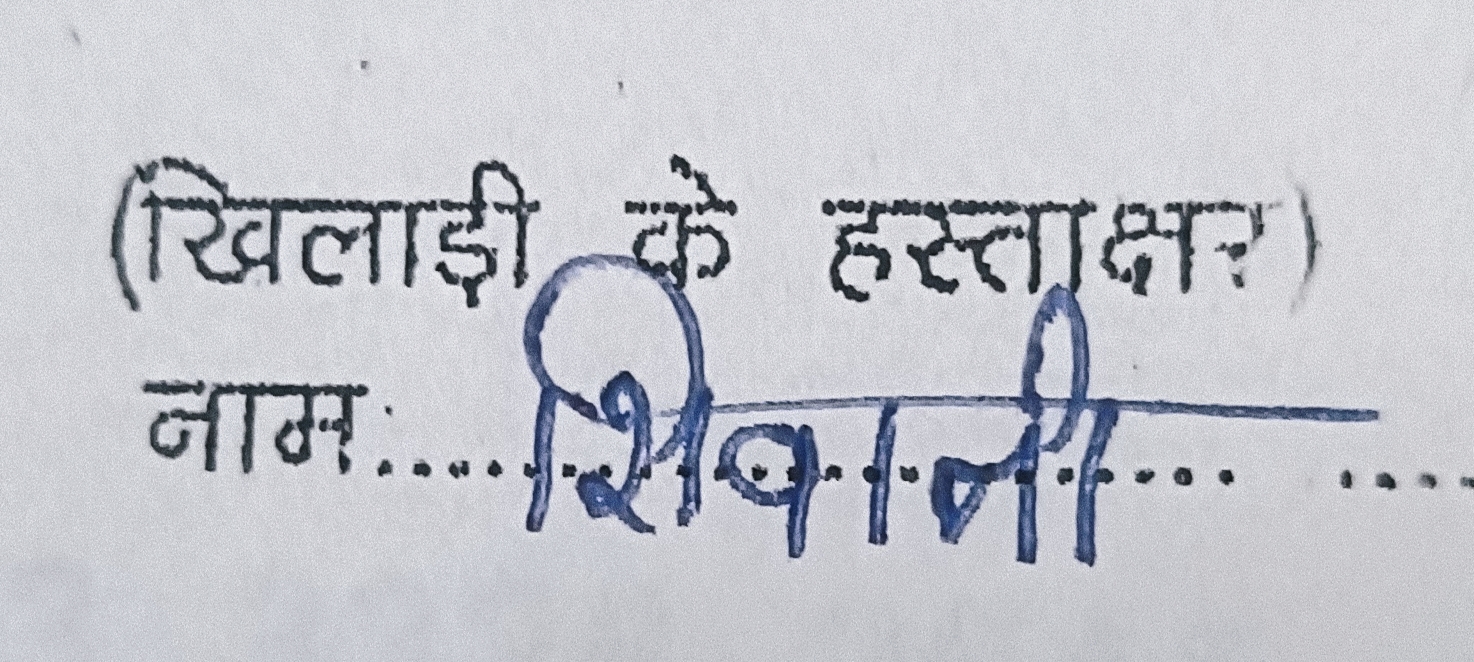 (खिलाड़ी के हस्ताक्षर)
नाम..... शिवानी ..... ....